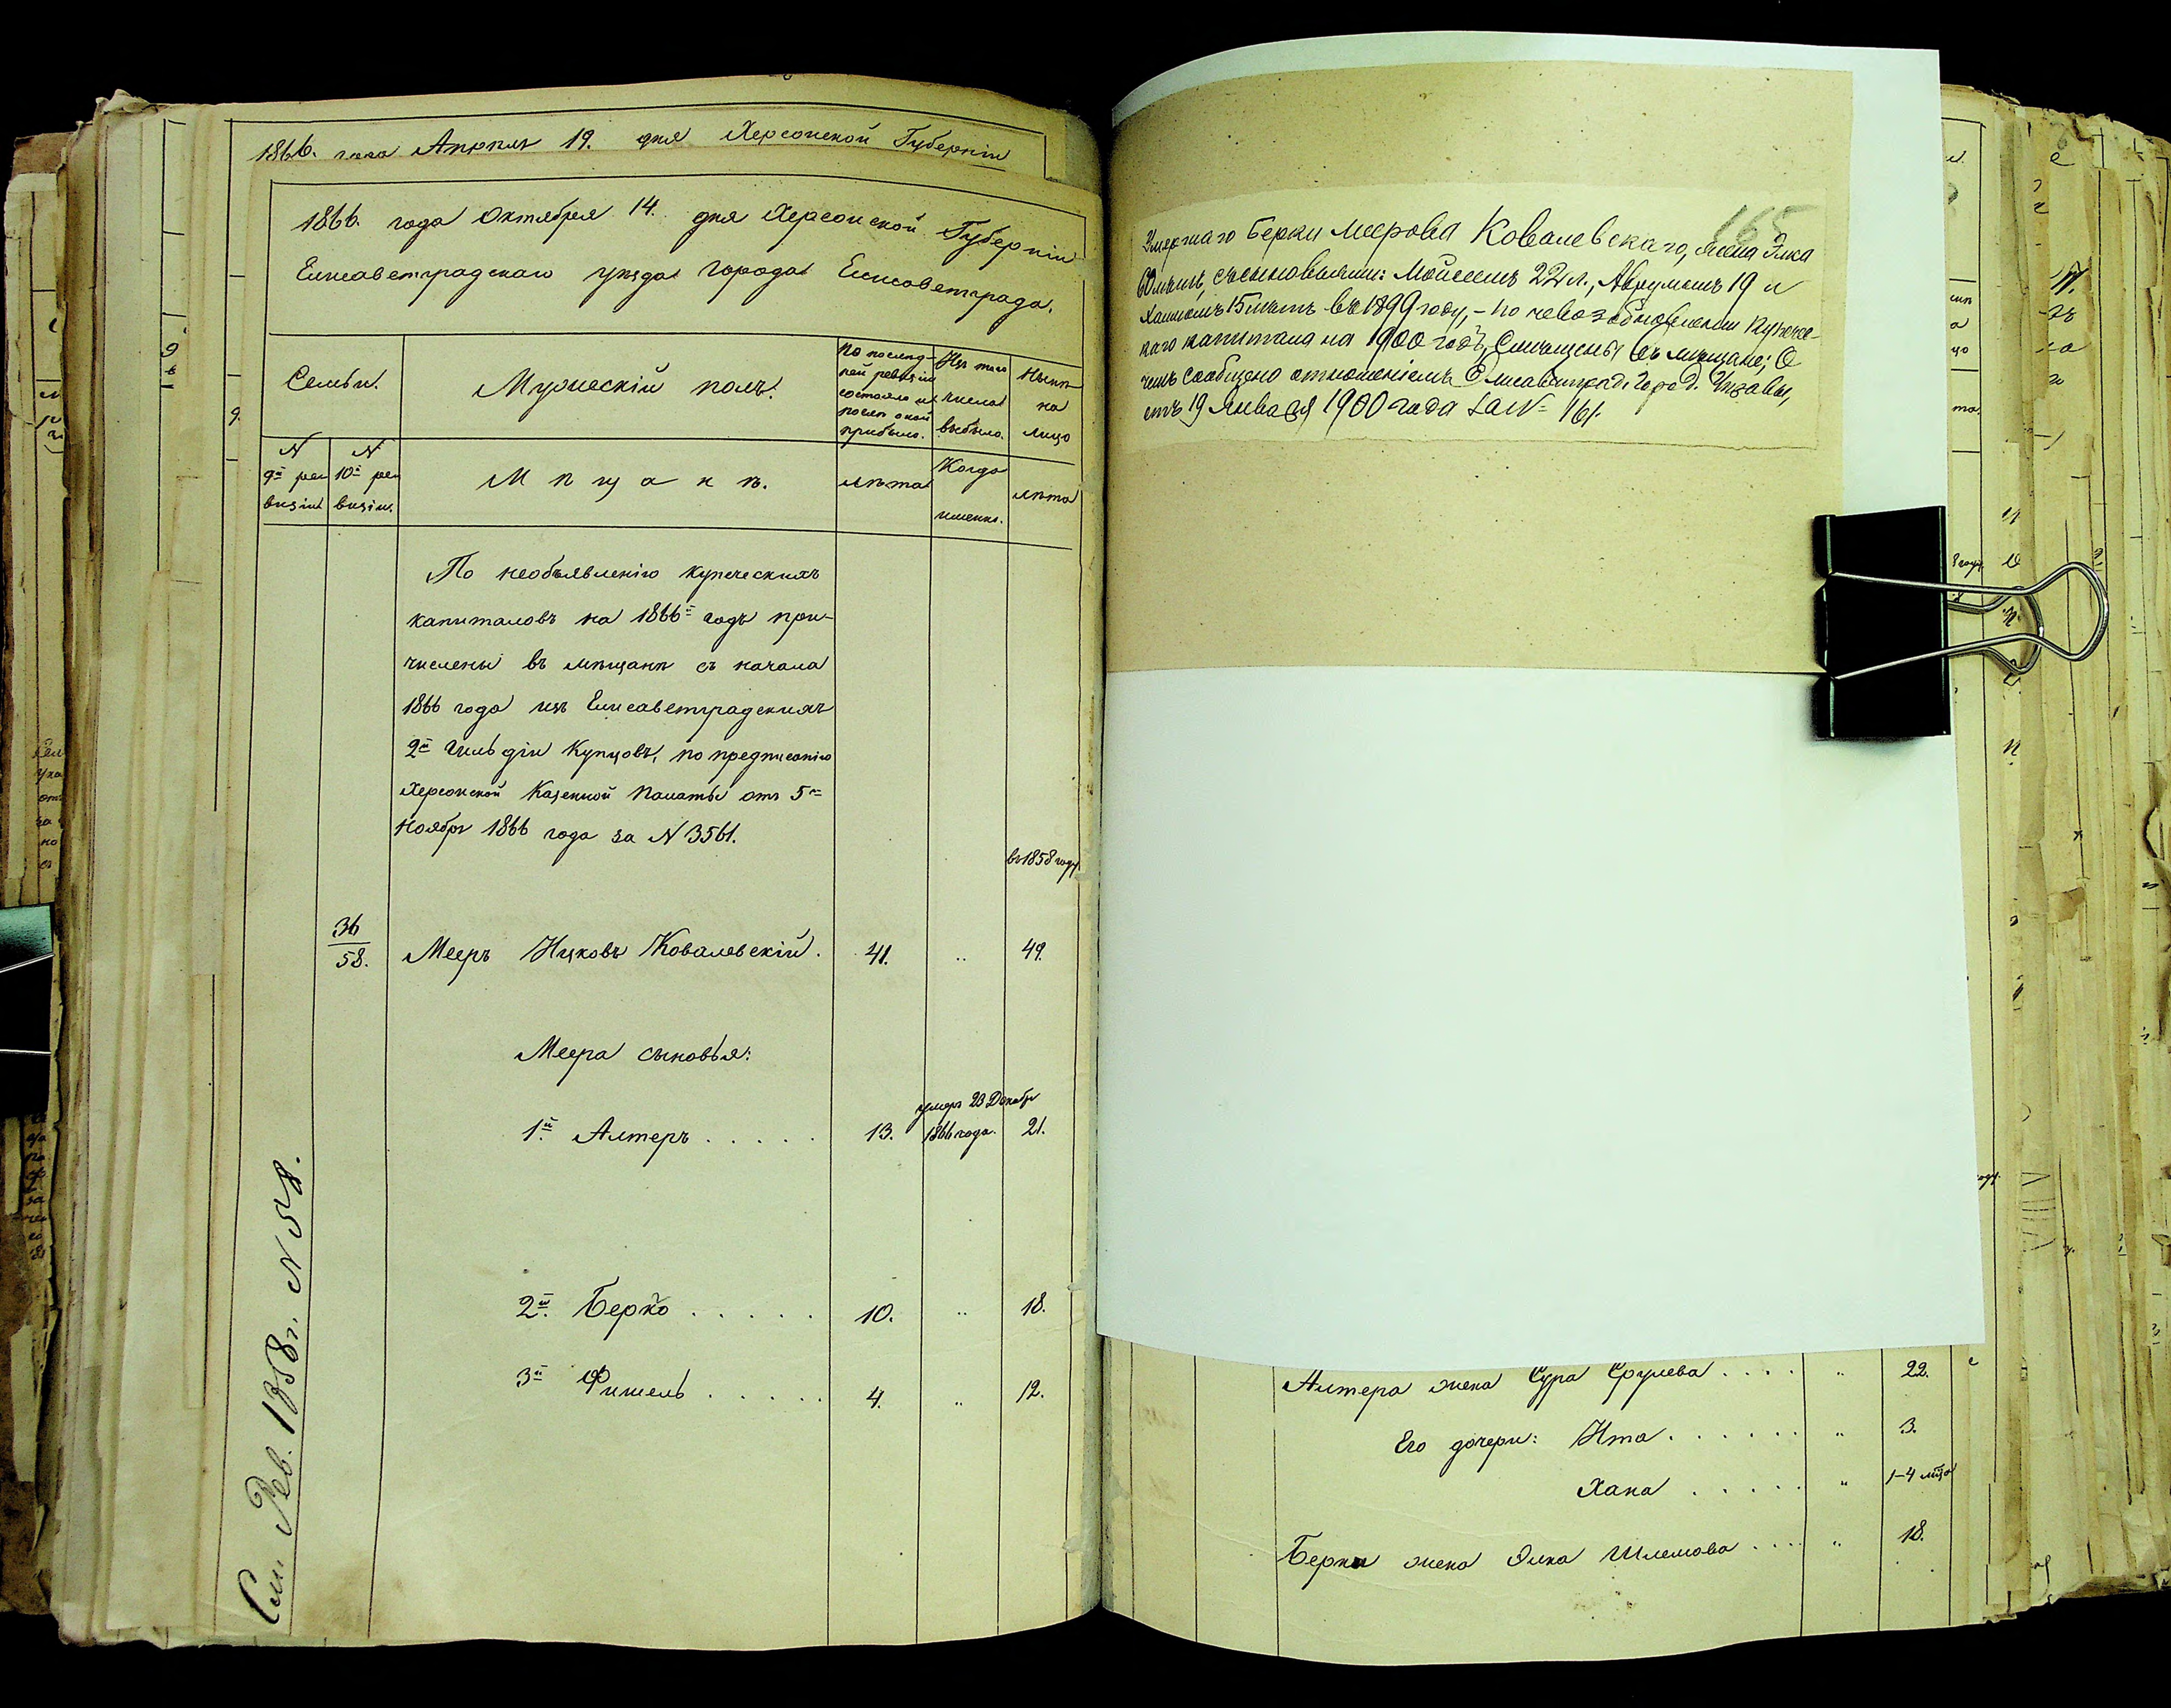 1866. года Апрѣля 19. дня Херсонской Губерніи
1866. года Октября 14. дня Херсонской Губерніи
Елисаветградскаго уѣзда города Елисаветграда.
Семьи.
Мужескій полъ.
По послѣд-
ней ревизіи
состояло и
послѣ оной
прибыло.
Изъ того
числа
выбыло.
Нынѣ
на
лицо
N
9й ре-
визіи
N
10й ре-
визіи.
Мѣщанѣ.
лѣта
Когда
именно.
лѣта
По необъявленію купеческихъ
капиталовъ на 1866й годъ при-
числены въ мѣщанѣ съ начала
1866 года изъ Елисаветградскихъ
2й Гильдіи Купцовъ, по предписанію
Херсонской Казенной Палаты отъ 5го
Ноября 1866 года за N 3561.
въ 1858 году
36
58.
Мееръ Ицковъ Ковалевскій. 41. " 49.
Меера сыновья:
умеръ 23 Декабр
1й Алтеръ . . . . . 13. 1866 года. 21.
2й Берко . . . . . 10. " 18.
3й Фишель . . . . . 4. " 12.
См. Рев. 1858 г. N 58.
165
Умершаго Берки Меерова Ковалевскаго, жена Элка
60 лѣтъ, съ сыновьями: Мойсеемъ 22 л., Аврумомъ 19 и
Хаимомъ 15 лѣтъ въ 1899 году, - по невозобновленіи купечес-
каго капитала на 1900 годъ, смѣщены въ мѣщане; О
чемъ сообщено отношеніемъ Елисаветград. Город. Управы,
отъ 19 Января 1900 года за N= 161.
Алтера жена Сура Срулева . . . . " 22.
Его дочери: Ита . . . . . . " 3.
Хана . . . . . " 1-4 мѣца
Берки жена Элка Шлемова . . . . " 18.